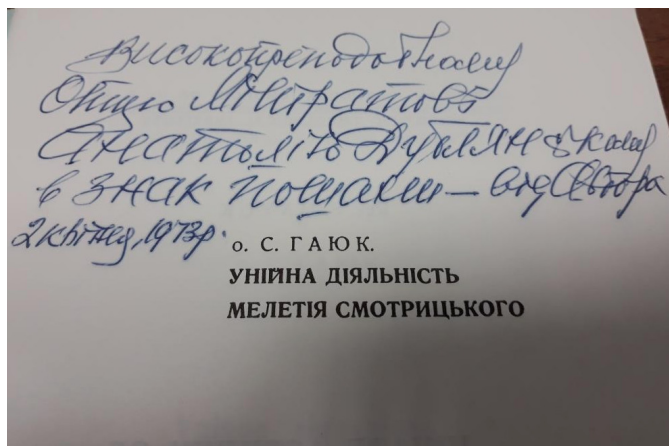 Високопреподобному
Отцю Мітратові
Анатолію Дублянському
в знак пошани — від Автора
2 квітня, 1973 р.
о. С. ГАЮК.
УНІЙНА ДІЯЛЬНІСТЬ
МЕЛЕТІЯ СМОТРИЦЬКОГО